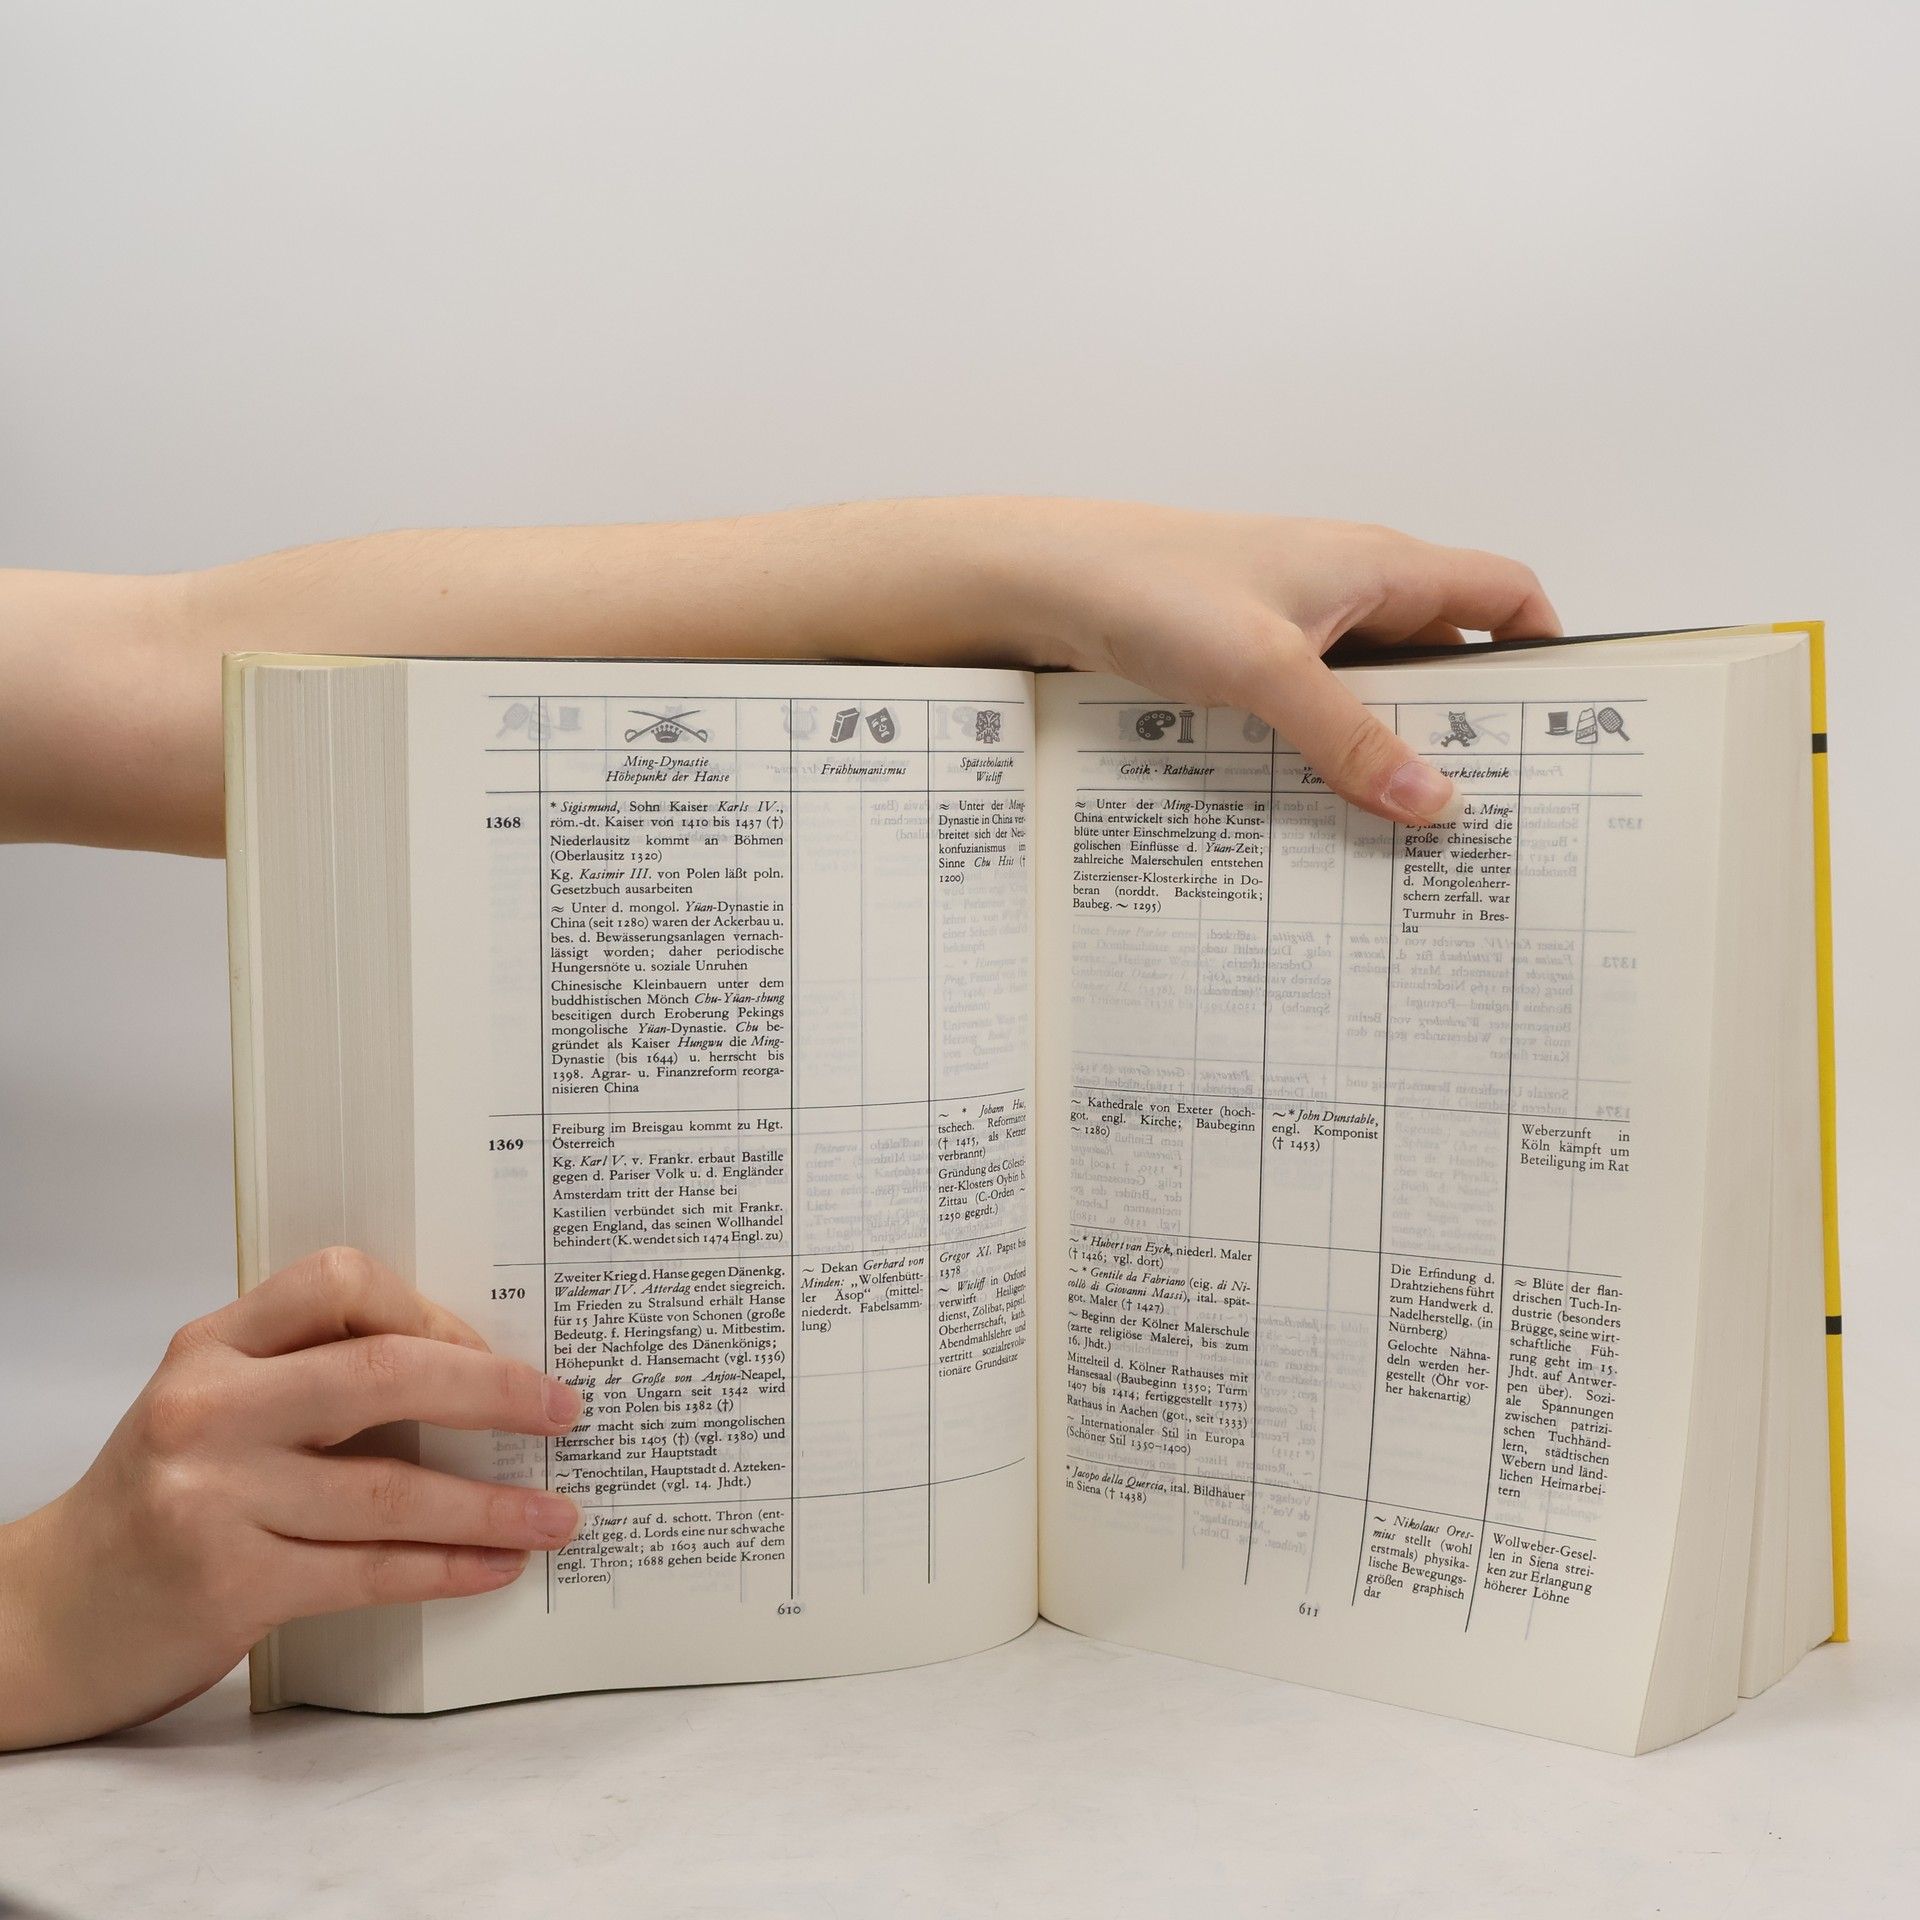 Ming-Dynastie
Höhepunkt der Hanse
Frühhumanismus
Spätscholastik
Wicliff
1368
* Sigismund, Sohn Kaiser Karls IV.,
röm.-dt. Kaiser von 1410 bis 1437 (†)
Niederlausitz kommt an Böhmen
(Oberlausitz 1320)
Kg. Kasimir III. von Polen läßt poln.
Gesetzbuch ausarbeiten
≈ Unter d. mongol. Yüan-Dynastie in
China (seit 1280) waren der Ackerbau u.
bes. d. Bewässerungsanlagen vernach-
lässigt worden; daher periodische
Hungersnöte u. soziale Unruhen
Chinesische Kleinbauern unter dem
buddhistischen Mönch Chu-Yüan-shung
beseitigen durch Eroberung Pekings
mongolische Yüan-Dynastie. Chu be-
gründet als Kaiser Hungwu die Ming-
Dynastie (bis 1644) u. herrscht bis
1398. Agrar- u. Finanzreform reorga-
nisieren China
≈ Unter der Ming-
Dynastie in China ver-
breitet sich der Neu-
konfuzianismus im
Sinne Chu Hsis (†
1200)
1369
Freiburg im Breisgau kommt zu Hgt.
Österreich
Kg. Karl V. v. Frankr. erbaut Bastille
gegen d. Pariser Volk u. d. Engländer
Amsterdam tritt der Hanse bei
Kastilien verbündet sich mit Frankr.
gegen England, das seinen Wollhandel
behindert (K. wendet sich 1474 Engl. zu)
~ * Johann Hus,
tschech. Reformator
(† 1415, als Ketzer
verbrannt)
Gründung des Cölesti-
ner-Klosters Oybin b.
Zittau (C.-Orden ~
1250 gegrdt.)
1370
Zweiter Krieg d. Hanse gegen Dänenkg.
Waldemar IV. Atterdag endet siegreich.
Im Frieden zu Stralsund erhält Hanse
für 15 Jahre Küste von Schonen (große
Bedeutg. f. Heringsfang) u. Mitbestim.
bei der Nachfolge des Dänenkönigs;
Höhepunkt d. Hansemacht (vgl. 1536)
Ludwig der Große von Anjou-Neapel,
von Ungarn seit 1342 wird
von Polen bis 1382 (†)
macht sich zum mongolischen
Herrscher bis 1405 (†) (vgl. 1380) und
Samarkand zur Hauptstadt
~ Tenochtilan, Hauptstadt d. Azteken-
reichs gegründet (vgl. 14. Jhdt.)
~ Dekan Gerhard von
Minden: „Wolfenbütt-
ler Äsop“ (mittel-
niederdt. Fabelsamm-
lung)
Gregor XI. Papst bis
1378
~ Wicliff in Oxford
verwirft Heiligen-
dienst, Zölibat, päpstl.
Oberherrschaft, kath.
Abendmahlslehre und
vertritt sozialrevolu-
tionäre Grundsätze
Stuart auf d. schott. Thron (ent-
geg. d. Lords eine nur schwache
Zentralgewalt; ab 1603 auch auf dem
engl. Thron; 1688 gehen beide Kronen
verloren)
610
Gotik · Rathäuser
≈ Unter der Ming-Dynastie in
China entwickelt sich hohe Kunst-
blüte unter Einschmelzung d. mon-
golischen Einflüsse d. Yüan-Zeit;
zahlreiche Malerschulen entstehen
Zisterzienser-Klosterkirche in Do-
beran (norddt. Backsteingotik;
Baubeg. ~ 1295)
d. Ming-
Dynastie wird die
große chinesische
Mauer wiederher-
gestellt, die unter
d. Mongolenherr-
schern zerfall. war
Turmuhr in Bres-
lau
~ Kathedrale von Exeter (hoch-
got. engl. Kirche; Baubeginn
~ 1280)
~ * John Dunstable,
engl. Komponist
(† 1453)
Weberzunft in
Köln kämpft um
Beteiligung im Rat
~ * Hubert van Eyck, niederl. Maler
(† 1426; vgl. dort)
~ * Gentile da Fabriano (eig. di Ni-
collò di Giovanni Massi), ital. spät-
got. Maler († 1427)
~ Beginn der Kölner Malerschule
(zarte religiöse Malerei, bis zum
16. Jhdt.)
Mittelteil d. Kölner Rathauses mit
Hansesaal (Baubeginn 1350; Turm
1407 bis 1414; fertiggestellt 1573)
Rathaus in Aachen (got., seit 1333)
~ Internationaler Stil in Europa
(Schöner Stil 1350–1400)
Die Erfindung d.
Drahtziehens führt
zum Handwerk d.
Nadelherstellg. (in
Nürnberg)
Gelochte Nähna-
deln werden her-
gestellt (Öhr vor-
her hakenartig)
≈ Blüte der flan-
drischen Tuch-In-
dustrie (besonders
Brügge, seine wirt-
schaftliche Füh-
rung geht im 15.
Jhdt. auf Antwer-
pen über). Sozi-
ale Spannungen
zwischen patrizi-
schen Tuchhänd-
lern, städtischen
Webern und länd-
lichen Heimarbei-
tern
* Jacopo della Quercia, ital. Bildhauer
in Siena († 1438)
~ Nikolaus Ores-
mius stellt (wohl
erstmals) physika-
lische Bewegungs-
größen graphisch
dar
Wollweber-Gesel-
len in Siena strei-
ken zur Erlangung
höherer Löhne
611